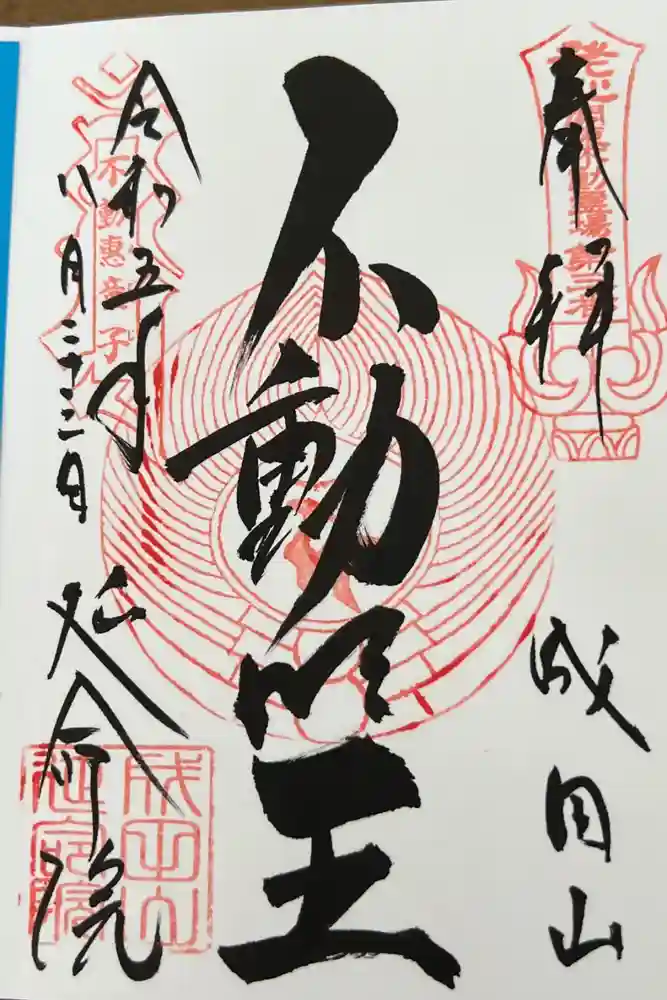 奉拝
成田山
不動明王
令和五年
八月二十二日
延命院
不動恵童子
成田山
延命院